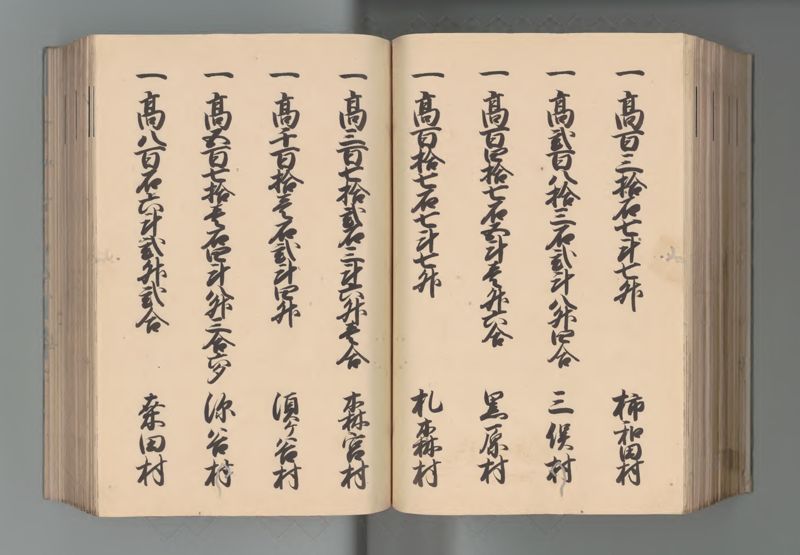 一 高百三拾石七斗七升 柿和田村
一 高弐百八拾三石弐斗八升四合 三俣村
一 高百四拾七石五斗壱升六合 黒原村
一 高百拾七石七斗七升 札森村
一 高三百七拾弐石三斗六升壱合 森宮村
一 高千百拾壱石弐斗四升 須ヶ谷村
一 高五百七拾壱石四斗升二合六夕 谷村
一 高八百石六斗弐升弐合 桒田村